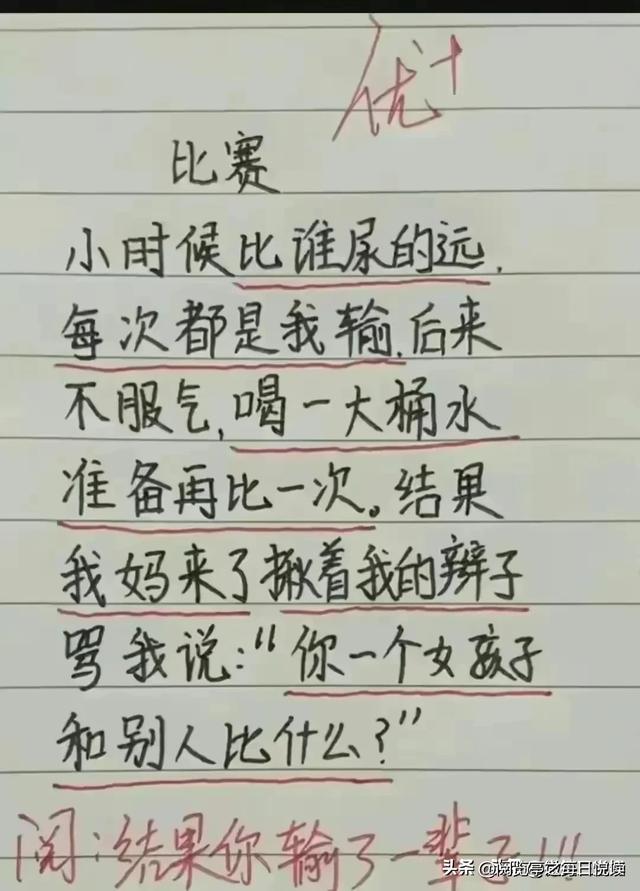 优+
比赛
小时候比谁尿的远,
每次都是我输,后来
不服气,喝一大桶水
准备再比一次。结果
我妈来了揪着我的辫子
骂我说:“你一个女孩子
和别人比什么?”
阅:结果你输了一辈子!!!
头条